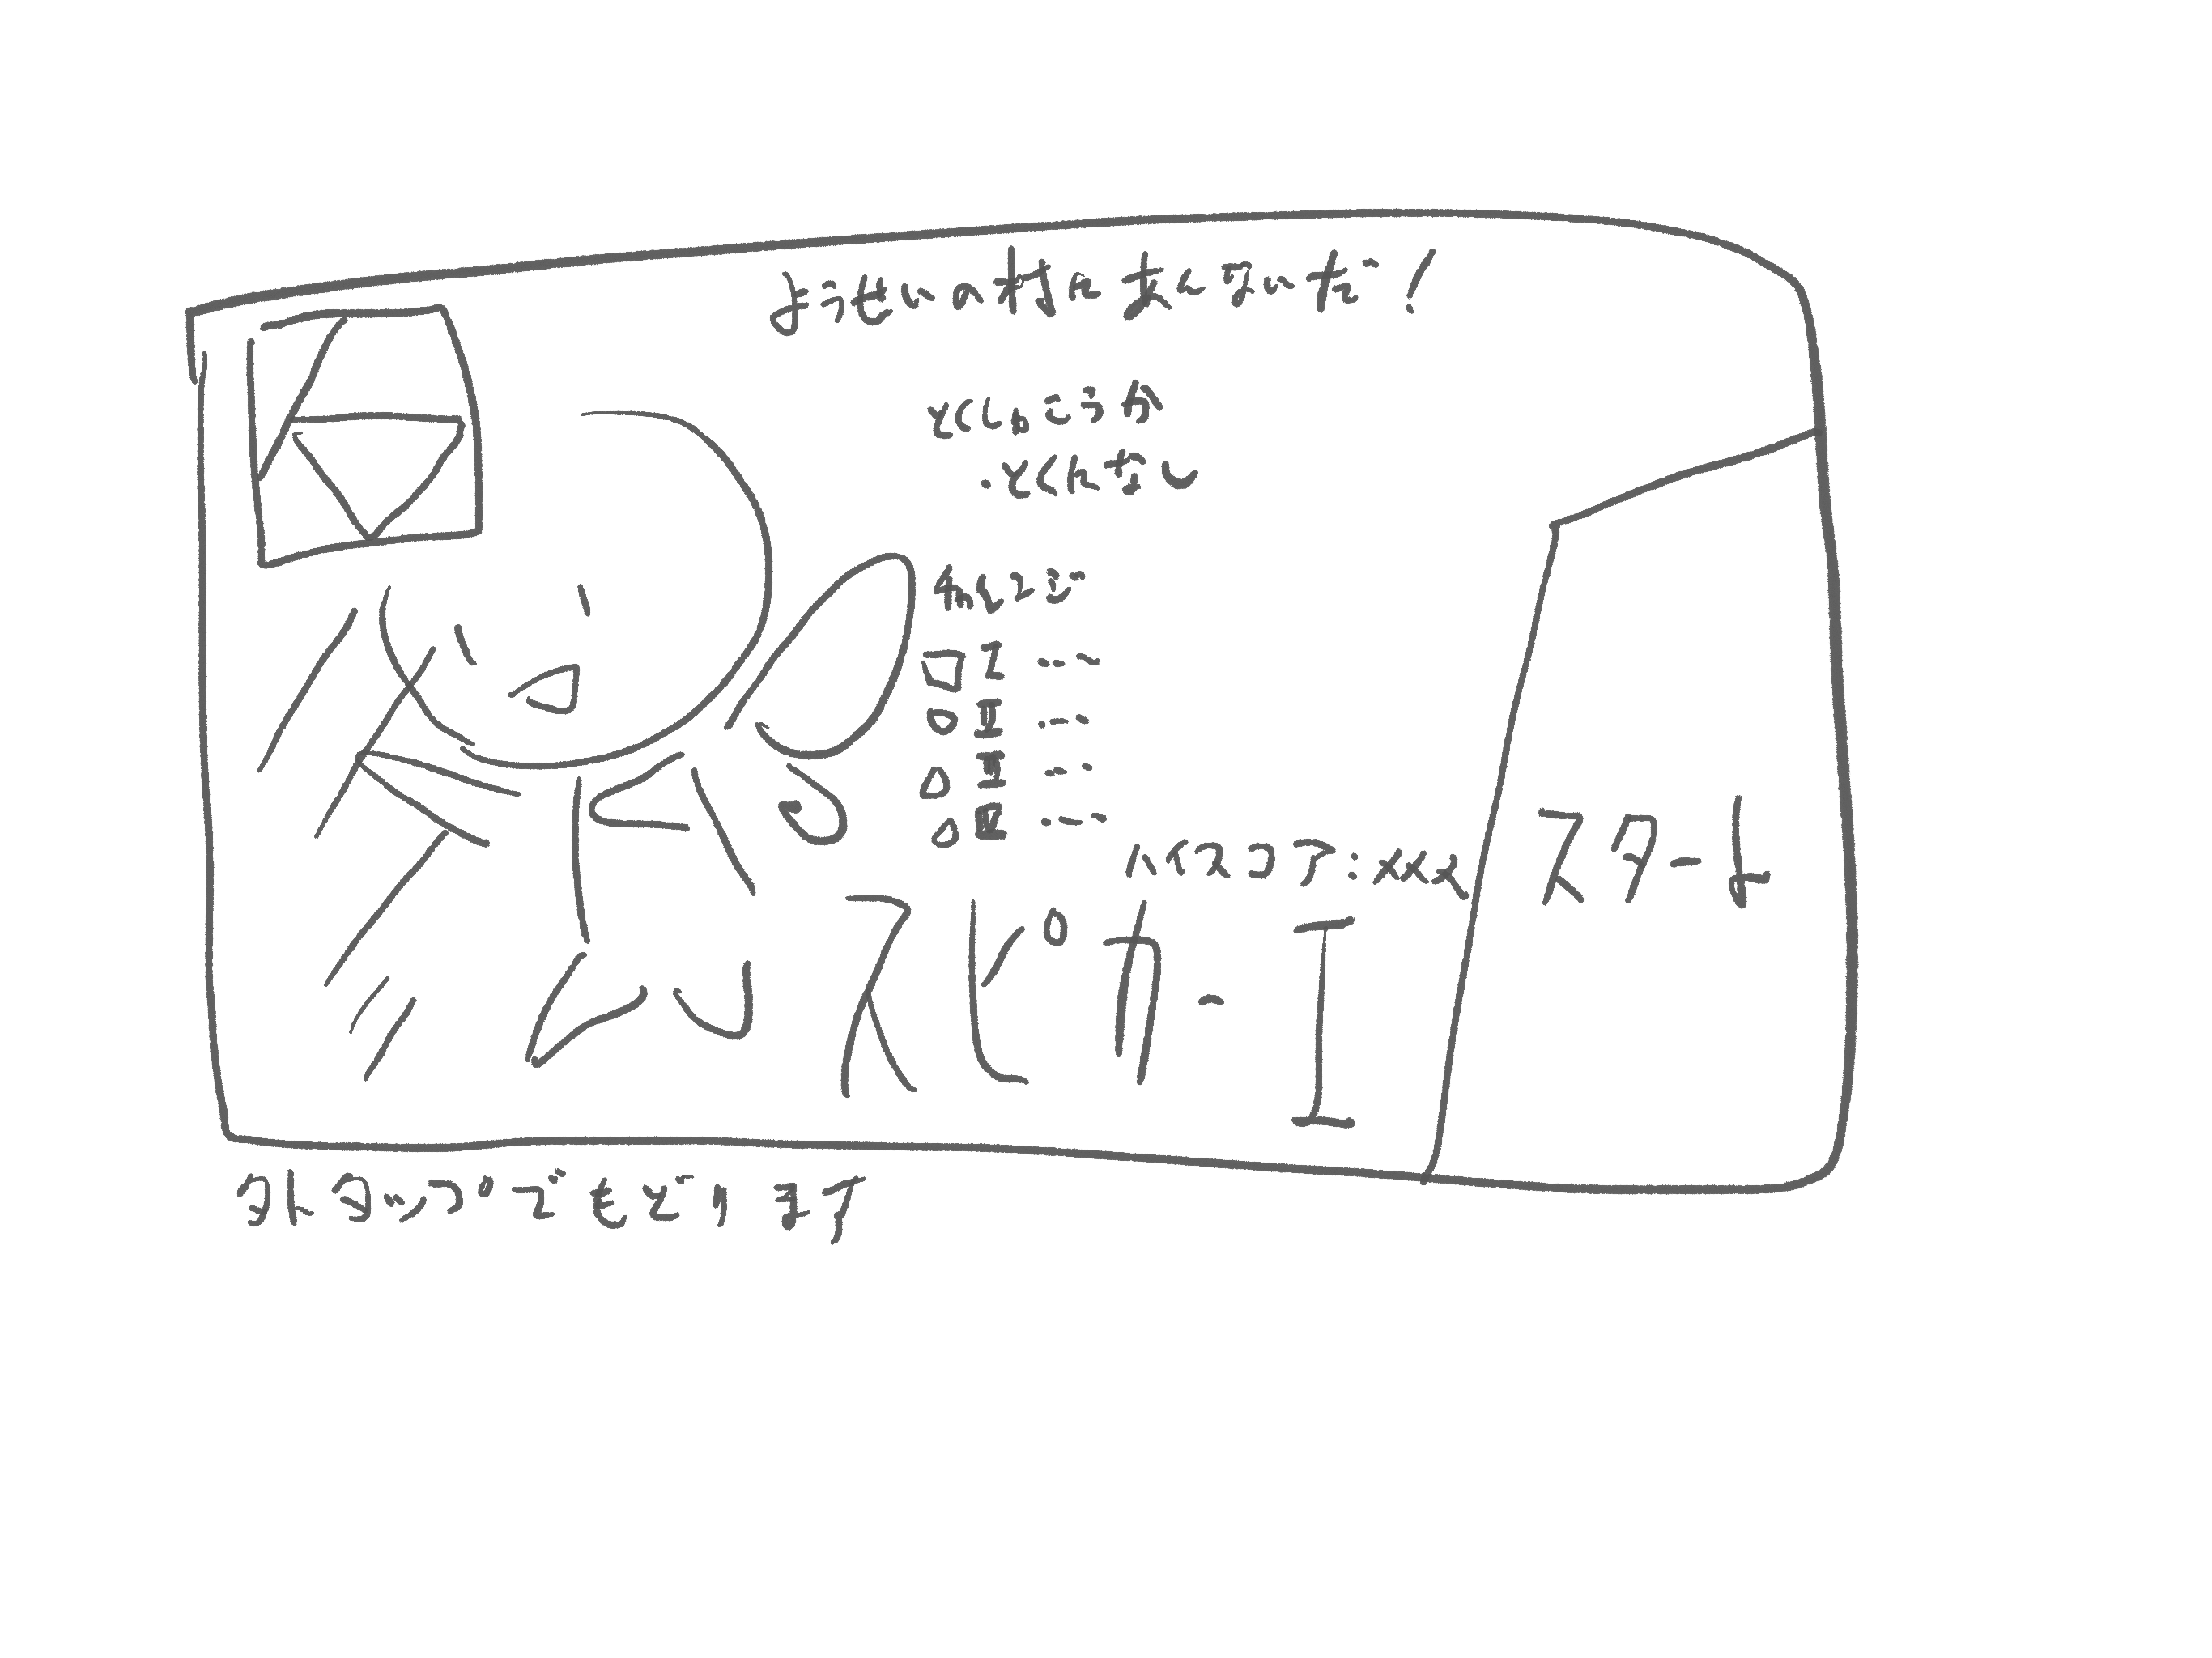 ようせいの村にあんないだ!
とくしゅこうか
・とくになし
4めもこう
I ---
II ---
III ---
IV ---
ハイスコア:xxx
スタート
スピカ-I
外タップでもどります